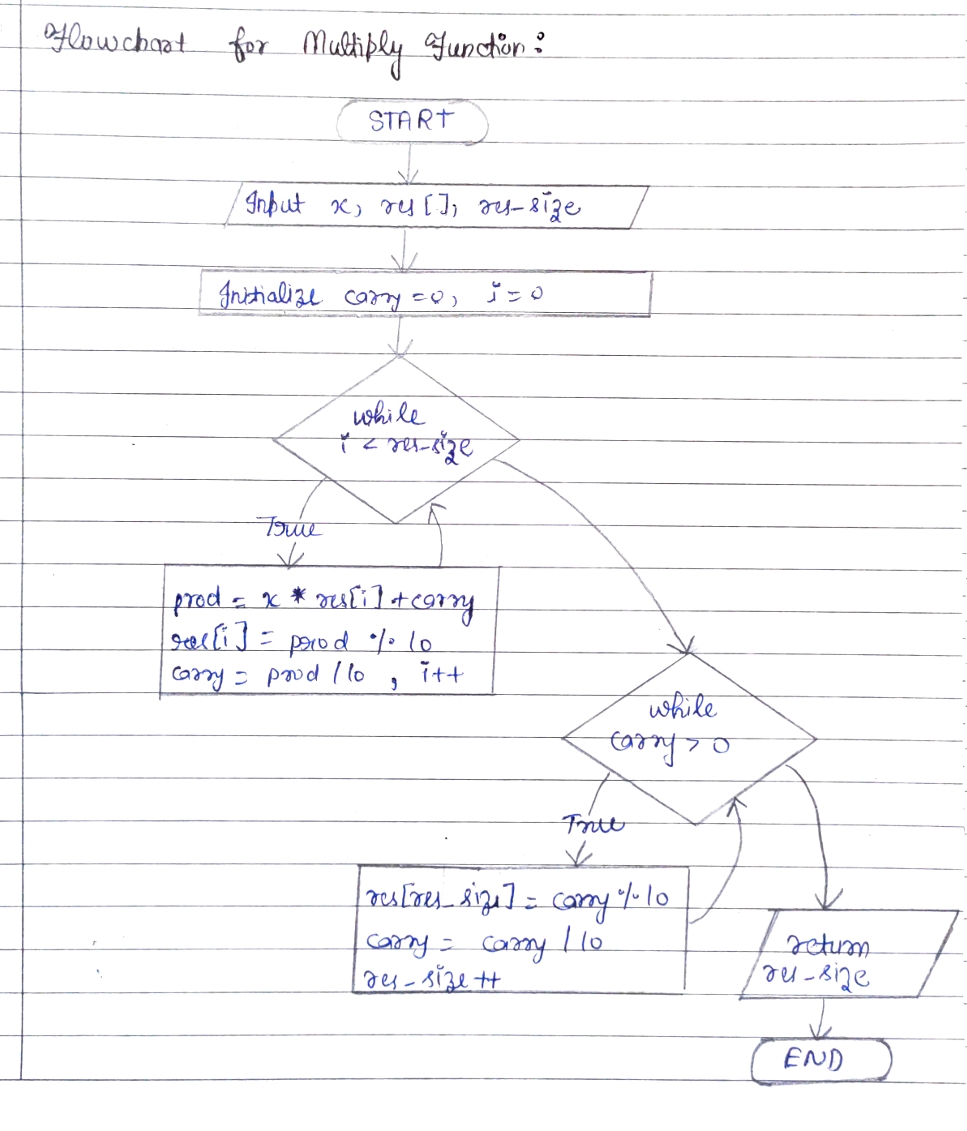 Flowchart for Multiply Function:
START
Input x, res[], res_size
Initialize carry=0, i=0
while
i < res_size
True
prod = x * res[i] + carry
res[i] = prod % 10
carry = prod / 10 , i++
while
carry > 0
True
res[res_size] = carry % 10
carry = carry / 10
res_size++
return
res_size
END